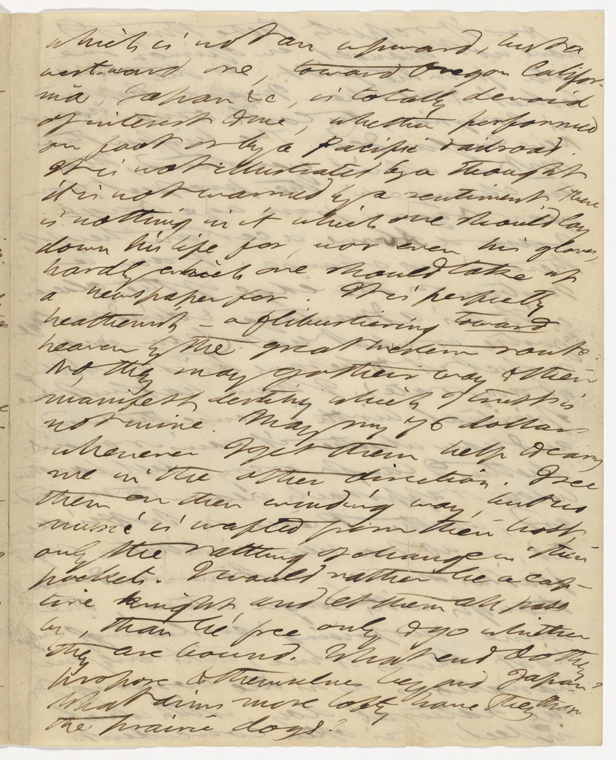 which is not an upward, but a
westward one, toward Oregon Califor-
nia, Japan &c, is totally devoid
of interest to me, whether performed
on foot or by a Pacific railroad
It is not illustrated by a thought
it is not warmed by a sentiment, there
is nothing in it which one should lay
down his life for, nor even his gloves,
hardly which one should take up
a newspaper for. It is perfectly
heathenish – a flibustiering toward
heaven by the great western route.
No, they may go their way to their
manifest destiny which I trust is
not mine. May my 76 dollars
whenever I get them help to carry
me in the other direction. I see
them on their winding way, but no
music is wafted from their host
only the rattling of change in their
pockets. I would rather be a cap-
tive knight, and let them all pass
by, than be free only to go whither
they are bound. What end do they
propose to themselves beyond Japan?
What aims more lofty have they than
the prairie dogs?